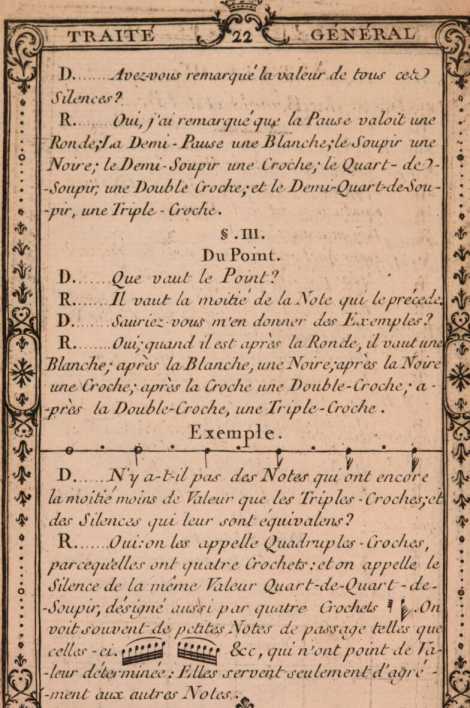 TRAITÉ 22 GÉNÉRAL
D.......Avez-vous remarqué la valeur de tous ces
Silences?
R.......Oui, j'ai remarqué que la Pause valoit une
Ronde; La Demi-Pause une Blanche; le Soupir une
Noire; le Demi-Soupir une Croche; le Quart-de-
-Soupir, une Double Croche; et le Demi-Quart-de-Sou-
-pir, une Triple-Croche.
§. III.
Du Point.
D.......Que vaut le Point?
R.......Il vaut la moitié de la Note qui le précede.
D.......Sauriez-vous m'en donner des Exemples?
R.......Oui; quand il est après la Ronde, il vaut une
Blanche; après la Blanche, une Noire; après la Noire
une Croche; après la Croche une Double-Croche; a-
-près la Double-Croche, une Triple-Croche.
Exemple.
D.......N'y a-t-il pas des Notes qui ont encore
la moitié moins de Valeur que les Triples-Croches; et
des Silences qui leur sont équivalens?
R.......Oui: on les appelle Quadruples-Croches,
parcequ'elles ont quatre Crochets: et on appelle le
Silence de la même Valeur Quart-de-Quart-de-
-Soupir, désigné aussi par quatre Crochets. On
voit souvent de petites Notes de passage telles que
celles-ci. &c, qui n'ont point de Va-
-leur déterminée: Elles servent seulement d'agré-
-ment aux autres Notes.